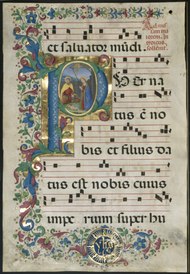 et salvator mūdi.
Puer na
tus ē no
bis et filius da
tus est nobis cuius
impe rium super hu